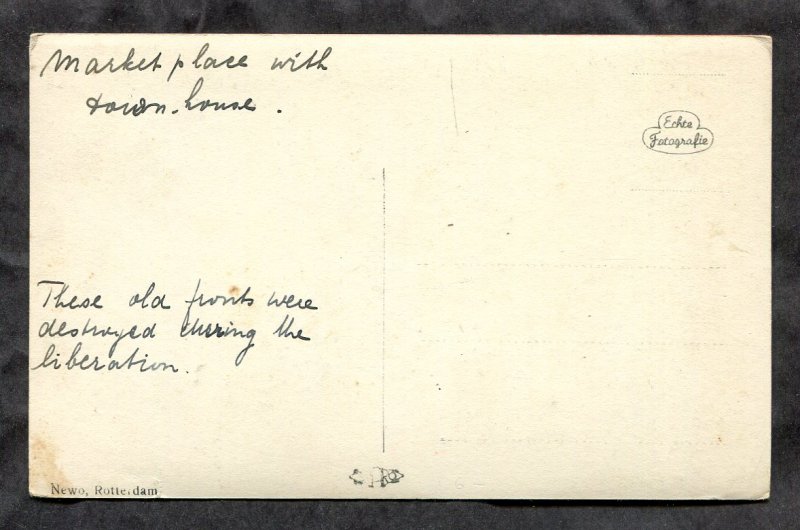 Market place with
town-house.
Echte
Fotografie
These old fronts were
destroyed during the
liberation.
Newo, Rotterdam